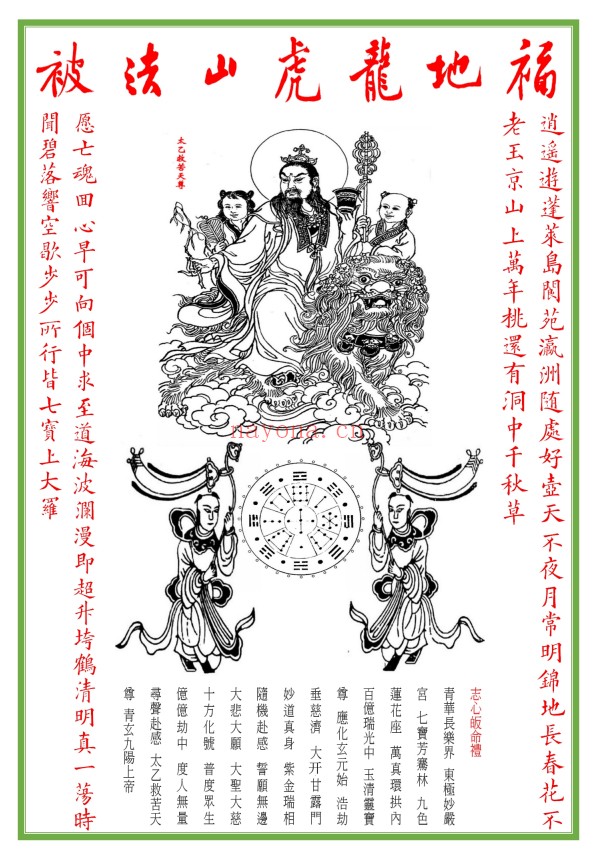 福地龍虎山法被
逍遥遊蓬萊島閬苑瀛洲隨處好壺天不夜月常明錦地長春花不
老王京山上萬年桃還有洞中千秋草
太乙救苦天尊
愿亡魂回心早可向個中求至道海波瀾漫即超升垮鶴清明真一蕩時
聞碧落響空歌步步所行皆七寶上大羅
nayona.cn
志心皈命禮
青華長樂界 東極妙嚴
宮 七寶芳騫林 九色
蓮花座 萬真環拱內
百億瑞光中 玉清靈寶
尊 應化玄元始 浩劫
垂慈濟 大开甘露門
妙道真身 紫金瑞相
隨機赴感 誓願無邊
大悲大願 大聖大慈
十方化號 普度眾生
億億劫中 度人無量
尋聲赴感 太乙救苦天
尊 青玄九陽上帝